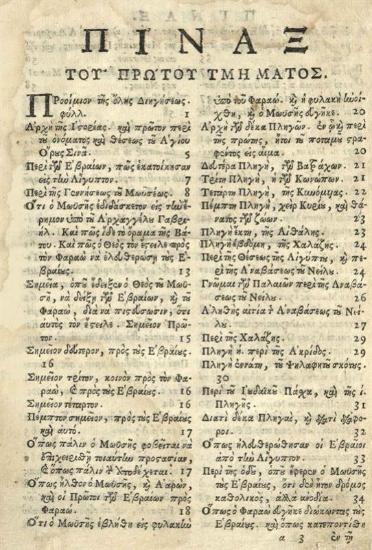 ΠΙΝΑΞ
ΤΟΥ ΠΡΩΤΟΥ ΤΜΗΜΑΤΟΣ.
Προοίμιον τῆς ὅλης Διηγήσεως.
φύλλ. 1
Ἀρχὴ τῆς Ἱστορίας. καὶ πρῶτον περὶ
τοῦ ὀνόματος καὶ θέσεως τοῦ Ἁγίου
Ὄρους Σινᾶ. 5
Περὶ τῶν Ἑβραίων, πῶς ἐκατοίκησαν
εἰς τὴν Αἴγυπτον. 7
Περὶ τῆς Γεννήσεως τοῦ Μωϋσέως. 8
Ὅτι ὁ Μωϋσῆς ἐδιδάσκετον εἰς τὴν ἔ-
ρημον ὑπὸ τοῦ Ἀρχαγγέλου Γαβρι-
ήλ. Καὶ πῶς εἶδε τὸ ὅραμα τῆς Βά-
του. Καὶ πῶς ὁ Θεὸς τὸν ἔστειλε πρὸς
τὸν Φαραὼ νὰ ἐλευθερώσῃ τοὺς Ἑ-
βραίους. 13
Σημεῖα, ὁποῦ ἔδειξεν ὁ Θεὸς τὸν Μωϋ-
σῆν, νὰ δείξῃ τῶν Ἑβραίων, καὶ τοῦ
Φαραὼ, διὰ νὰ πιστεύσουν, ὅτι
αὐτὸς τὸν ἔστειλε. Σημεῖον Πρῶ-
τον. 15
Σημεῖον δεύτερον, πρὸς τοὺς Ἑβραίους.
16
Σημεῖον τρίτον, κοινὸν πρὸς τὸν Φα-
ραὼ, καὶ πρὸς τοὺς Ἑβραίους. 16
Σημεῖον τέταρτον. 16
Πέμπτον σημεῖον, πρὸς τοὺς Ἑβραίους
καὶ αὐτό. 17
Ὅπως πάλιν ὁ Μωϋσῆς φοβεῖται νὰ
ἐπιχειρισθῇ τοιαύτην προστασίαν,
καὶ ὅπως πάλιν τὴν ἀποδέχεται. 17
Ὅπως ἦλθον ὁ Μωϋσῆς, καὶ ὁ Ἀαρὼν,
καὶ οἱ Πρῶτοι τῶν Ἑβραίων πρὸς
Φαραώ. 18
Ὅτι ὁ Μωϋσῆς ἐβλήθη εἰς φυλακὴν
ὑπὸ τοῦ Φαραὼ. καὶ ἡ φυλακὴ ἠνοί-
χθη, καὶ ὁ Μωϋσῆς ἐβγῆκε. 20
Ἀρχὴ τῶν δέκα Πληγῶν. ἐν ᾧ καὶ περὶ
τῆς πρώτης, ἤτοι τὸ ποτάμι στρα-
φέντος εἰς αἷμα. 20
Δευτέρα Πληγὴ, τῶν Βατράχων. 21
Τρίτη Πληγὴ, ἡ τῶν Κωνώπων. 21
Τετάρτη Πληγὴ, τῆς Κυνόμυιας. 22
Πέμπτη Πληγὴ, χεὶρ Κυρίου, καὶ θά-
νατος τῶν ζώων. 23
Πληγὴ ἕκτη, τῆς Αἰθάλης. 23
Πληγὴ ἑβδόμη, τῆς Χαλάζης. 24
Περὶ τῆς Θέσεως τῆς Αἰγύπτου, καὶ πε-
ρὶ τῆς Ἀναβάσεως τοῦ Νείλου. 24
Γνῶμαι τῶν Παλαιῶν περὶ τῆς Ἀναβά-
σεως τοῦ Νείλου. 26
Ἀληθὴς αἰτία τῆς Ἀναβάσεως τοῦ Νεί-
λου. 27
Περὶ τῆς Χαλάζης. 29
Πληγὴ ηʹ. περὶ τῆς Ἀκρίδος. 29
Πληγὴ ἐννάτη, τοῦ Ψηλαφητοῦ σκότους.
30
Περὶ τοῦ Ἰουδαϊκοῦ Πάσχα, καὶ τῆς ι.
Πληγῆς. 31
Διατὶ δέκα Πληγαὶ, καὶ διατὶ διάφο-
ροι. 32
Ὅπως ἠλευθερώθησαν οἱ Ἑβραῖοι
ἀπὸ τὴν Αἴγυπτον. 33
Περὶ τῆς ὁδοῦ, ὁποῦ ἔφερεν ὁ Μωϋσῆς
τοὺς Ἑβραίους, ὅτι δὲν ἦτον δρόμος
καθολικὸς, ἀλλὰ μόνδια. 34
Ὅπως ὁ Φαραὼ εὐγῆκε διώκωντας τοὺς
Ἑβραίους. καὶ ὅπως κατεποντίσθη
a 3 ἐν τῇ